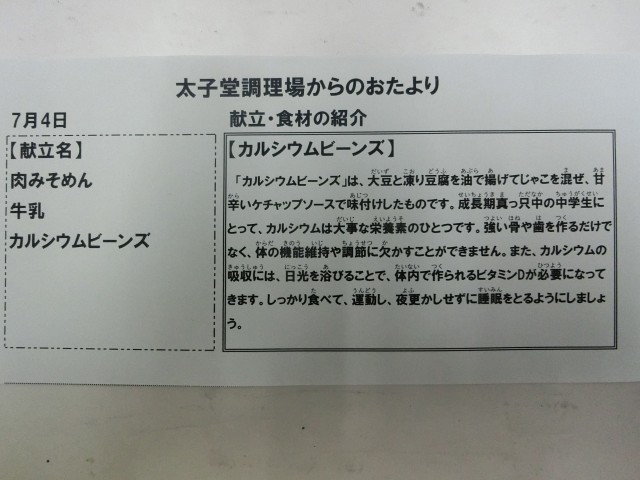 太子堂調理場からのおたより
7月4日
献立・食材の紹介
【献立名】
肉みそめん
牛乳
カルシウムビーンズ
【カルシウムビーンズ】
「カルシウムビーンズ」は、大豆と凍り豆腐を油で揚げてじゃこを混ぜ、甘
辛いケチャップソースで味付けしたものです。成長期真っ只中の中学生に
とって、カルシウムは大事な栄養素のひとつです。強い骨や歯を作るだけで
なく、体の機能維持や調節に欠かすことができません。また、カルシウムの
吸収には、日光を浴びることで、体内で作られるビタミンDが必要になって
きます。しっかり食べて、運動し、夜更かしせずに睡眠をとるようにしましょ
う。